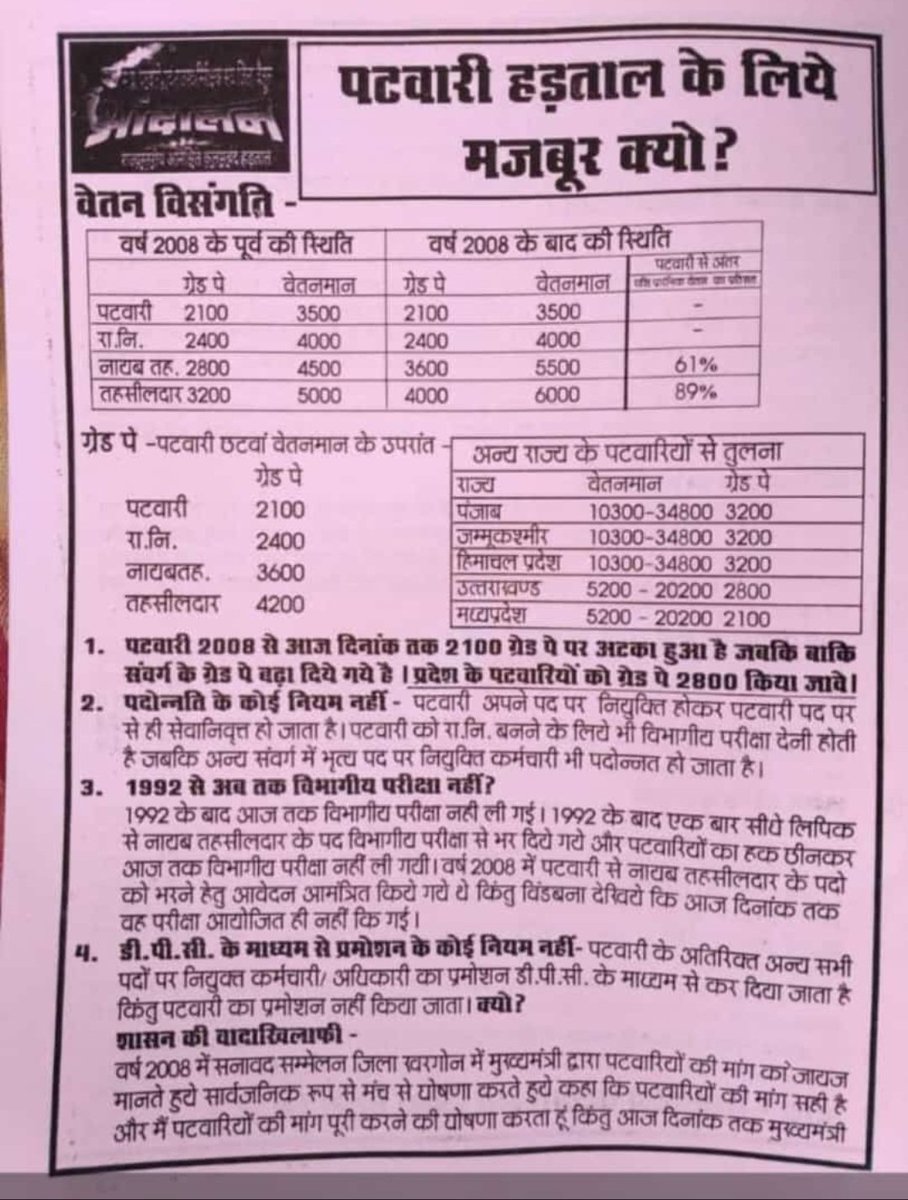 आंदोलन
पटवारी हड़ताल के लिये
मजबूर क्यो?
वेतन विसंगति -
वर्ष 2008 के पूर्व की स्थिति वर्ष 2008 के बाद की स्थिति
ग्रेड पे वेतनमान ग्रेड पे वेतनमान पटवारी से अंतर
पटवारी 2100 3500 2100 3500 -
रा.नि. 2400 4000 2400 4000 -
नायब तह. 2800 4500 3600 5500 61%
तहसीलदार 3200 5000 4000 6000 89%
ग्रेड पे -पटवारी छटवां वेतनमान के उपरांत -
ग्रेड पे
पटवारी 2100
रा.नि. 2400
नायबतह. 3600
तहसीलदार 4200
अन्य राज्य के पटवारियों से तुलना
राज्य वेतनमान ग्रेड पे
पंजाब 10300-34800 3200
जम्मूकश्मीर 10300-34800 3200
हिमाचल प्रदेश 10300-34800 3200
उत्तराखण्ड 5200 - 20200 2800
मध्यप्रदेश 5200 - 20200 2100
1. पटवारी 2008 से आज दिनांक तक 2100 ग्रेड पे पर अटका हुआ है जबकि बाकि
संवर्ग के ग्रेड पे बढ़ा दिये गये है। प्रदेश के पटवारियों को ग्रेड पे 2800 किया जावे।
2. पदोन्नति के कोई नियम नहीं - पटवारी अपने पद पर नियुक्ति होकर पटवारी पद पर
से ही सेवानिवृत्त हो जाता है। पटवारी को रा.नि. बनने के लिये भी विभागीय परीक्षा देनी होती
है जबकि अन्य संवर्ग में भृत्य पद पर नियुक्ति कर्मचारी भी पदोन्नत हो जाता है।
3. 1992 से अब तक विभागीय परीक्षा नहीं?
1992 के बाद आज तक विभागीय परीक्षा नही ली गई। 1992 के बाद एक बार सीधे लिपिक
से नायब तहसीलदार के पद विभागीय परीक्षा से भर दिये गये और पटवारियों का हक छीनकर
आज तक विभागीय परीक्षा नहीं ली गयी। वर्ष 2008 में पटवारी से नायब तहसीलदार के पदो
को भरने हेतु आवेदन आमंत्रित किये गये थे किंतु विंडबना देखिये कि आज दिनांक तक
वह परीक्षा आयोजित ही नहीं कि गई।
4. डी.पी.सी. के माध्यम से प्रमोशन के कोई नियम नहीं- पटवारी के अतिरिक्त अन्य सभी
पदों पर नियुक्त कर्मचारी/ अधिकारी का प्रमोशन डी.पी.सी. के माध्यम से कर दिया जाता है
किंतु पटवारी का प्रमोशन नहीं किया जाता। क्यो?
शासन की वादाखिलाफी -
वर्ष 2008 में सनावद सम्मेलन जिला खरगोन में मुख्यमंत्री द्वारा पटवारियों की मांग को जायज
मानते हुये सार्वजनिक रूप से मंच से घोषणा करते हुये कहा कि पटवारियों की मांग सही है
और मैं पटवारियों की मांग पूरी करने की घोषणा करता हूं किंतु आज दिनांक तक मुख्यमंत्री